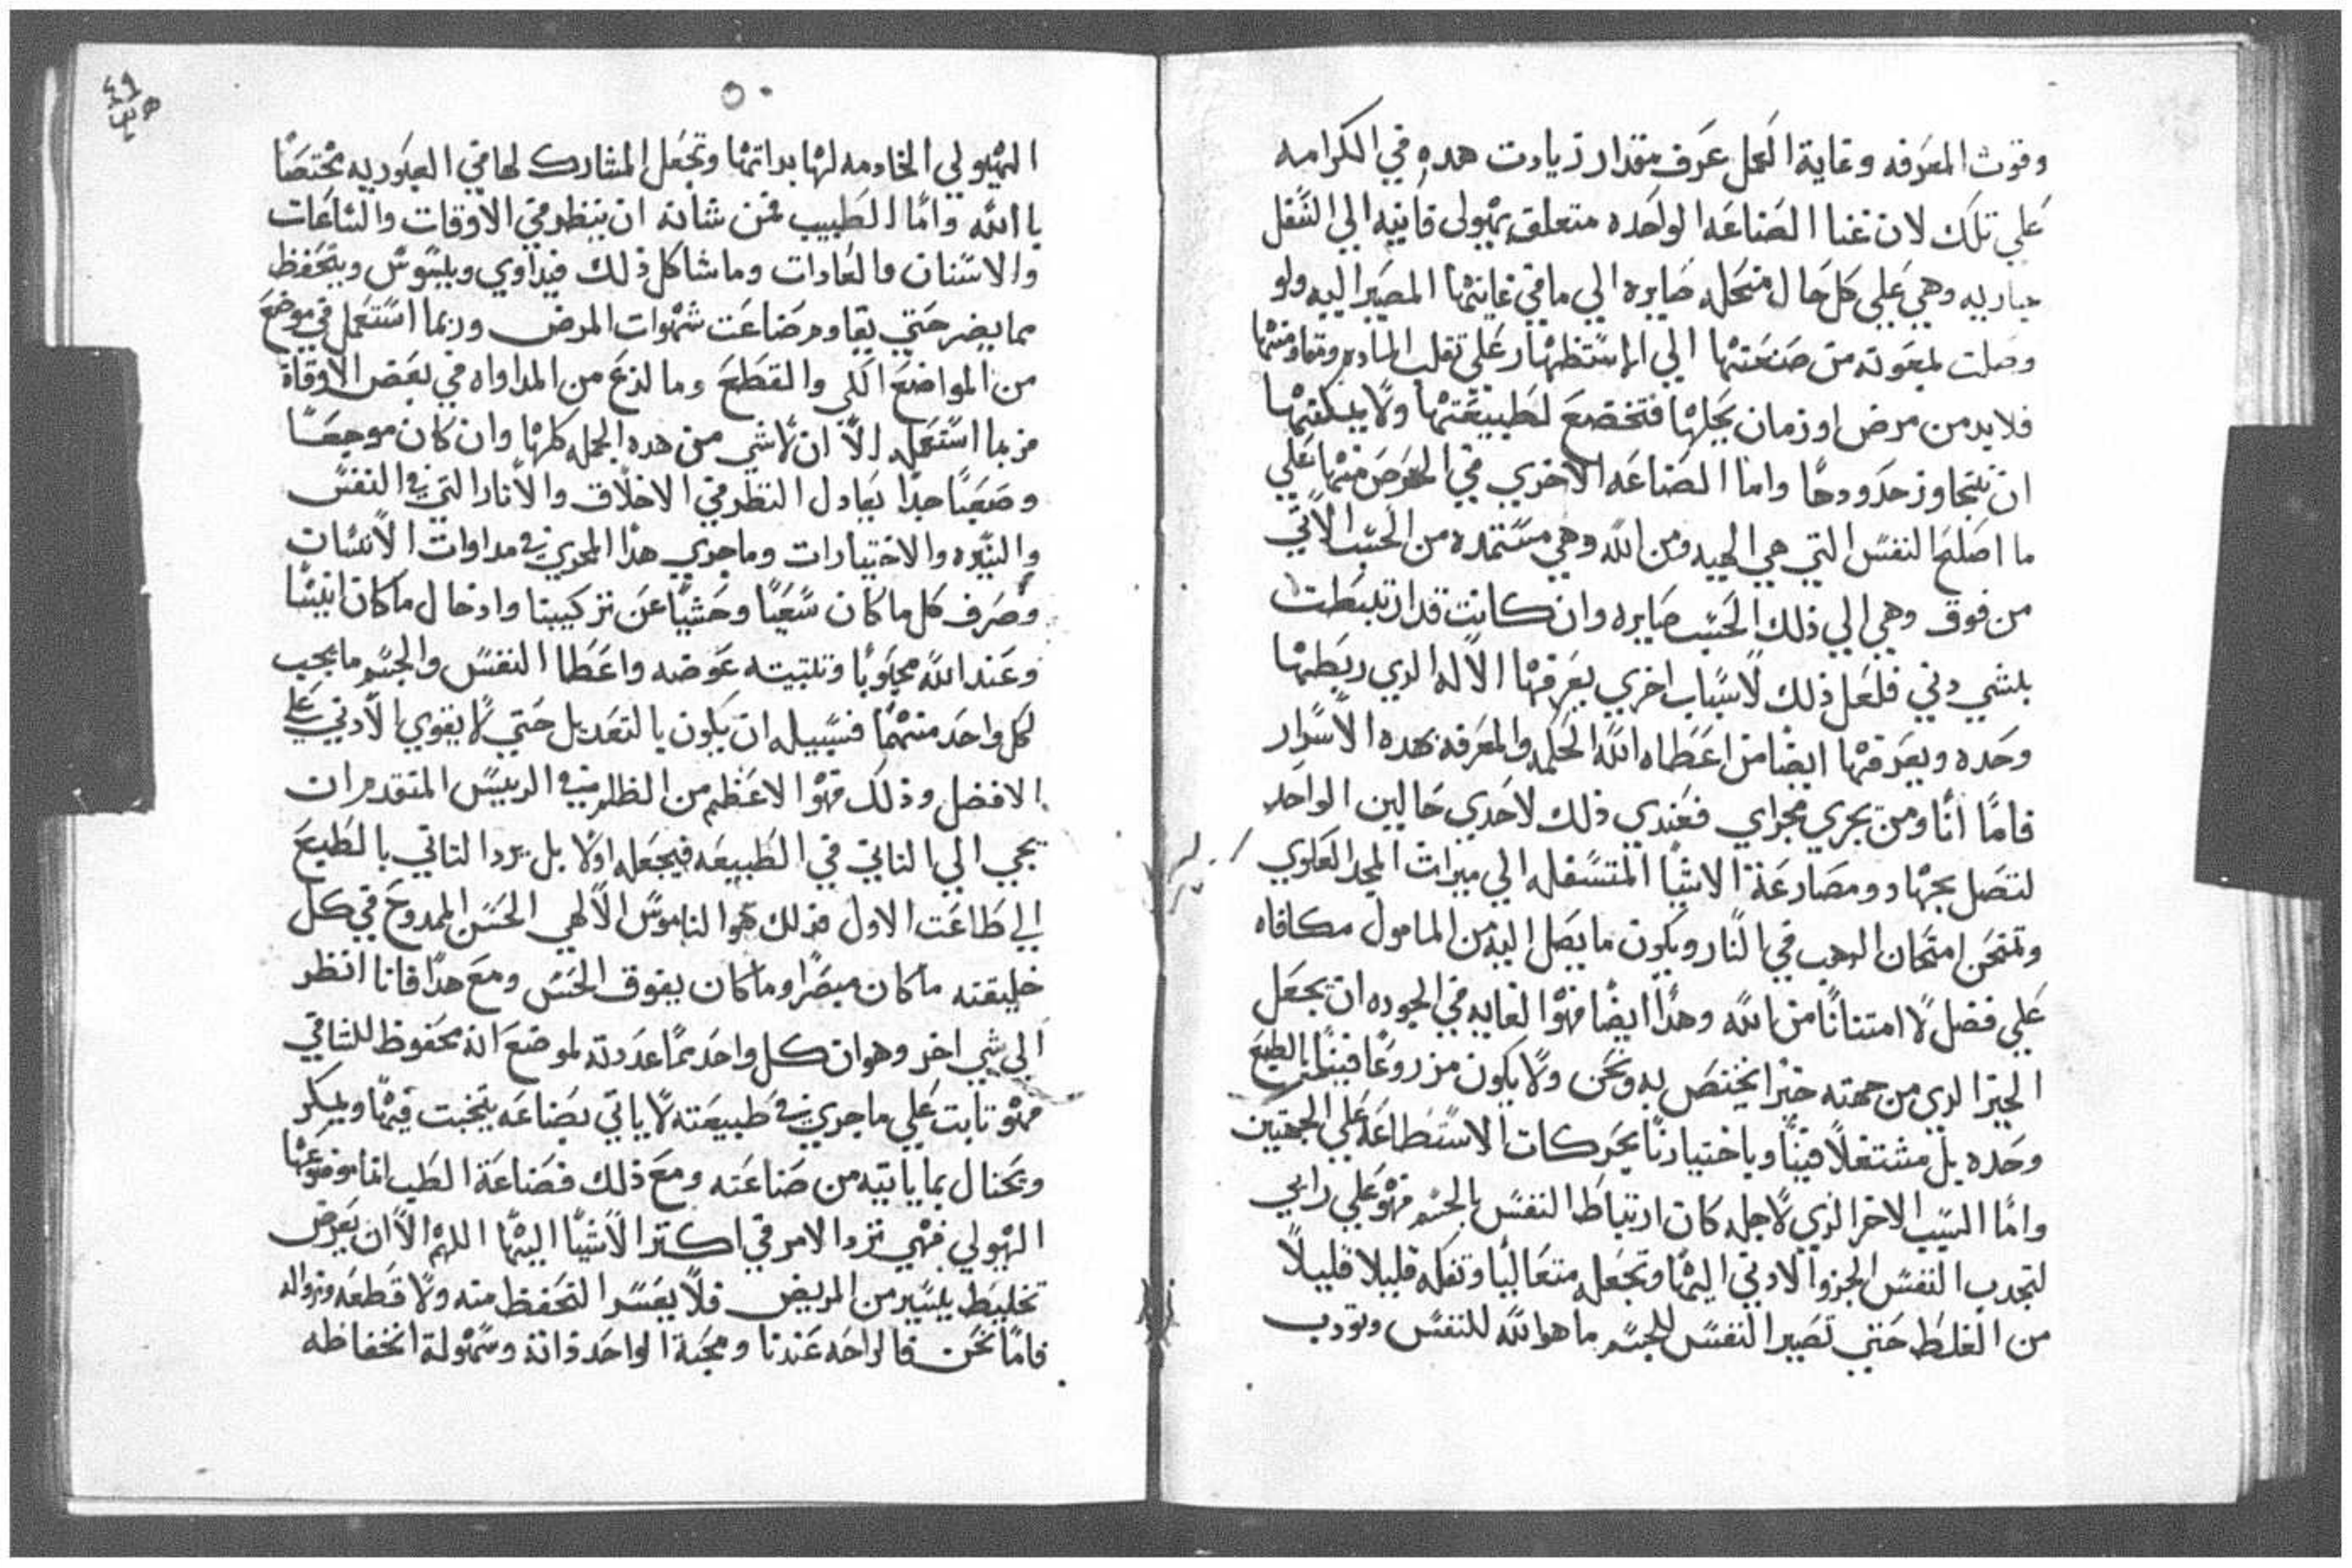 وقوت المعرفه وغاية العمل عرف مقدار زيادت هده في الكرامه
علي تلك لان غنا الصناعه الواحده متعلق بهيولى فانيه الي السفل
جاريه وهي علي كل حال منحله صايره الي ما في غايتها المصير اليه ولو
وصلت لمعونه من صنعتها الي الاستظهار علي تقلب الماده ومقاومتها
فلابد من مرض او زمان يحيلها فتخضع لطبيعتها ولا يمكنها
ان تتجاوز حدودها واما الصناعه الاخري في الحرص منها علي
ما اصلح النفس التي هي الهيه ومن الله وهي مستمده من الحسب الاتي
من فوق وهي الي ذلك الحسب صايره وان كانت قد ارتبطت
بشي دني فلعل ذلك لاسباب اخري يعرفها الاله الدي ربطها
وحده ويعرفها ايضا من اعطاه الله الحكمه والمعرفه بهده الاسرار
فاما انا ومن يجري مجراي فعندي ذلك لاحدي حالين الواحد
لتصل بجهاد ومصارعة الاشيا المتسفله الي ميراث المجد العلوي
وتمتحن امتحان الدهب في النار ويكون ما يصل اليه من المامول مكافاه
علي فضل لا امتنانا من الله وهدا ايضا فهو الغايه في الجوده ان يجعل
الخير الدي من جهته خيرا يختص به ونحن ولا يكون مزروعا فينا بالطبع
وحده بل مشتغلا فينا وباختيارنا بحركات الاستطاعه علي الجهتين
واما السبب الاخر الدي لاجله كان ارتباط النفس بالجسم فهو علي رايي
لتجدب النفس الجزو الادني اليها وتجعله متعاليا وتفكه قليلا قليلا
من الغلط حتي تصير النفس للجسم ما هو الله للنفس وتودب
٥٠
الهيولي الخادمه لها بداتها وتجعل المشارك لها في العبوديه مختصا
باالله واما الطبيب فمن شانه ان ينظر في الاوقات والساعات
والاسنان والعادات وما شاكل ذلك فيداوي ويسوس ويتحفظ
مما يضر حتي يقاوم صناعت شهوات المرض وربما استعمل في موضع
من المواضع الكي والقطع وما لذع من المداواه في بعض الاوقاة
فربما استعمله الا ان لا شي من هده الجمله كلها وان كان موجعا
وصعبا جدا يعادل النظر في الاخلاق والاثار التي في النفس
والسيره والاختيارات وما جري هدا المجري في مداوات الانسان
وصرف كل ما كان سعيا وحشيا عن تركيبنا وادخال ما كان انيسا
وعند الله محبوبا وتتبيته عوضه واعطا النفس والجسم ما يجب
لكل واحد منهما فسبيله ان يكون بالتعديل حتي لا يقوي الادني علي
الافضل وذلك فهو الاعظم من الظلم في الرييس المتقدم ان
يجي الي التاني في الطبيعه فيجعله اولا بل يرد التاني بالطبع
الي طاعت الاول فذلك هو الناموس الالهي الحسن الممدوح في كل
خليقته ما كان مبصرا وما كان يفوق الحس ومع هدا فانا انظر
الي شي اخر وهو ان كل واحد مما عددته لموضع انه محفوظ للشاقي
فهو تابت علي ما جري في طبيعته لا ياتي بصناعه يتخبت فيها ويمكر
ويحتال بما ياتيه من صناعته ومع ذلك فصناعة الطب انما موضوعها
الهيولي فهي ترد الامر في اكتر الاشيا اليها اللهم الا ان يعرض
تخليط يسير من المريض فلا يعسر التحفظ منه ولا قطعه وزواله
فاما نحن فالراحه عندنا ومحبة الواحد ذاته وسهولة انخفاظه